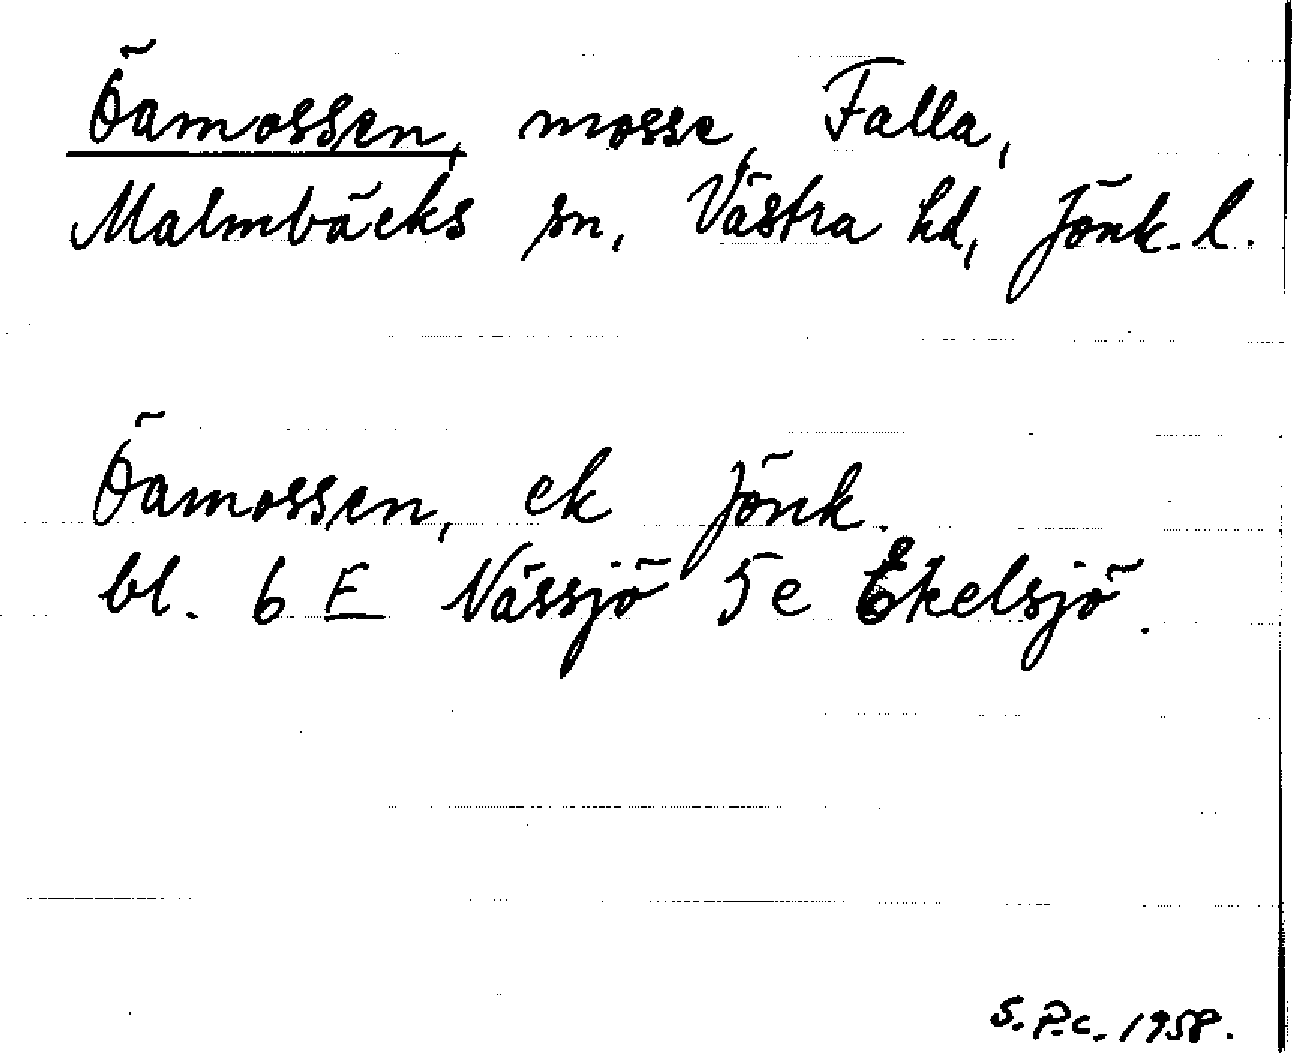 Öamossen, mosse, Falla,
Malmbäcks sn, Västra hd, Jönk. l.
Öamossen, ek Jönk.
bl. 6 E Nässjö 5e Ekelsjö.
S.P.c. 1958.